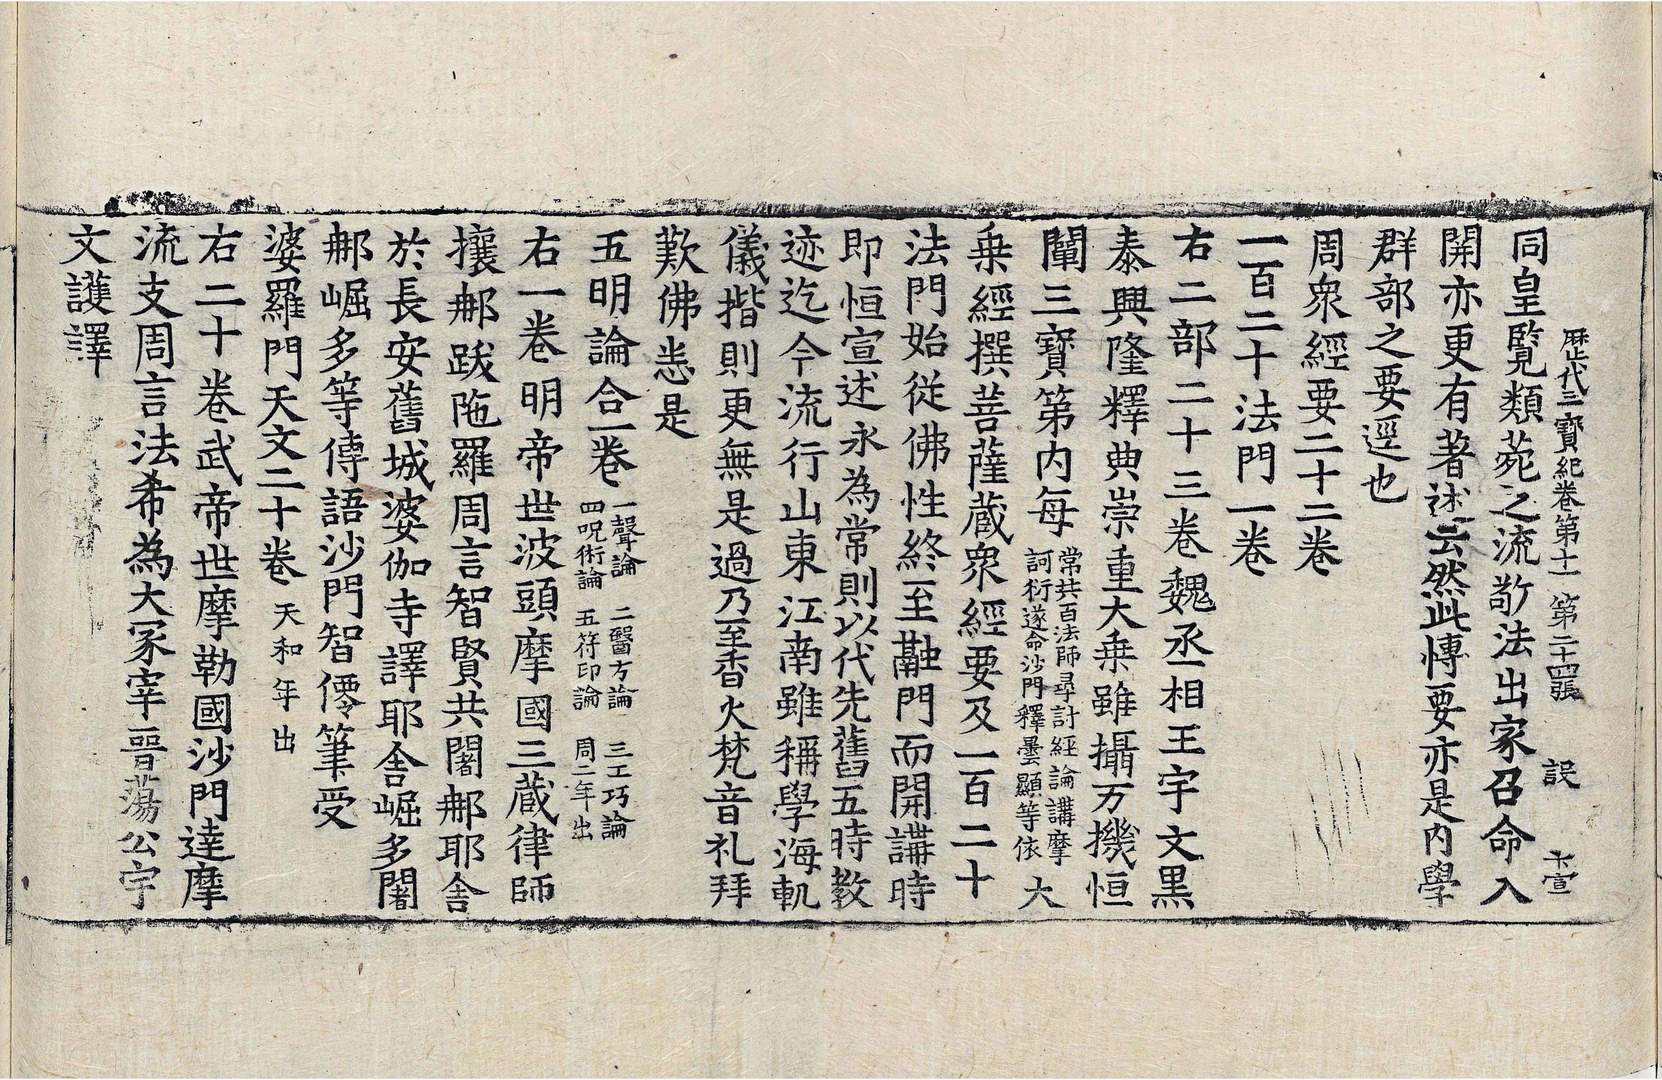 歷代三寶紀卷第十一 第二十四張 設
同皇覽類菀之流敬法出家召命入
開亦更有著述云然此博要亦是內學
群部之要逕也
周衆經要二十二卷
一百二十法門一卷
右二部二十三卷魏丞相王宇文黑
泰興隆釋典崇重大乗雖攝万機恒
闡三寶第内每常共百法師尋討經論講摩
訶衍遂命沙門釋曇顯等依大
乗經撰菩薩藏衆經要及一百二十
法門始從佛性終至融門而開講時
即恒宣述永為常則以代先舊五時教
迹迄今流行山東江南雖稱學海軌
儀揩則更無是過乃至香火梵音礼拜
歎佛悉是
五明論合一卷一聲論 二醫方論 三工巧論
四呪術論 五符印論 周二年出
右一卷明帝世波頭摩國三藏律師
攘那跋陁羅周言智賢共闍那耶舍
於長安舊城婆伽寺譯耶舍崛多闍
那崛多等傳語沙門智僊筆受
婆羅門天文二十卷天和年出
右二十卷武帝世摩勒國沙門達摩
流支周言法希為大冢宰晉蕩公宇
文護譯